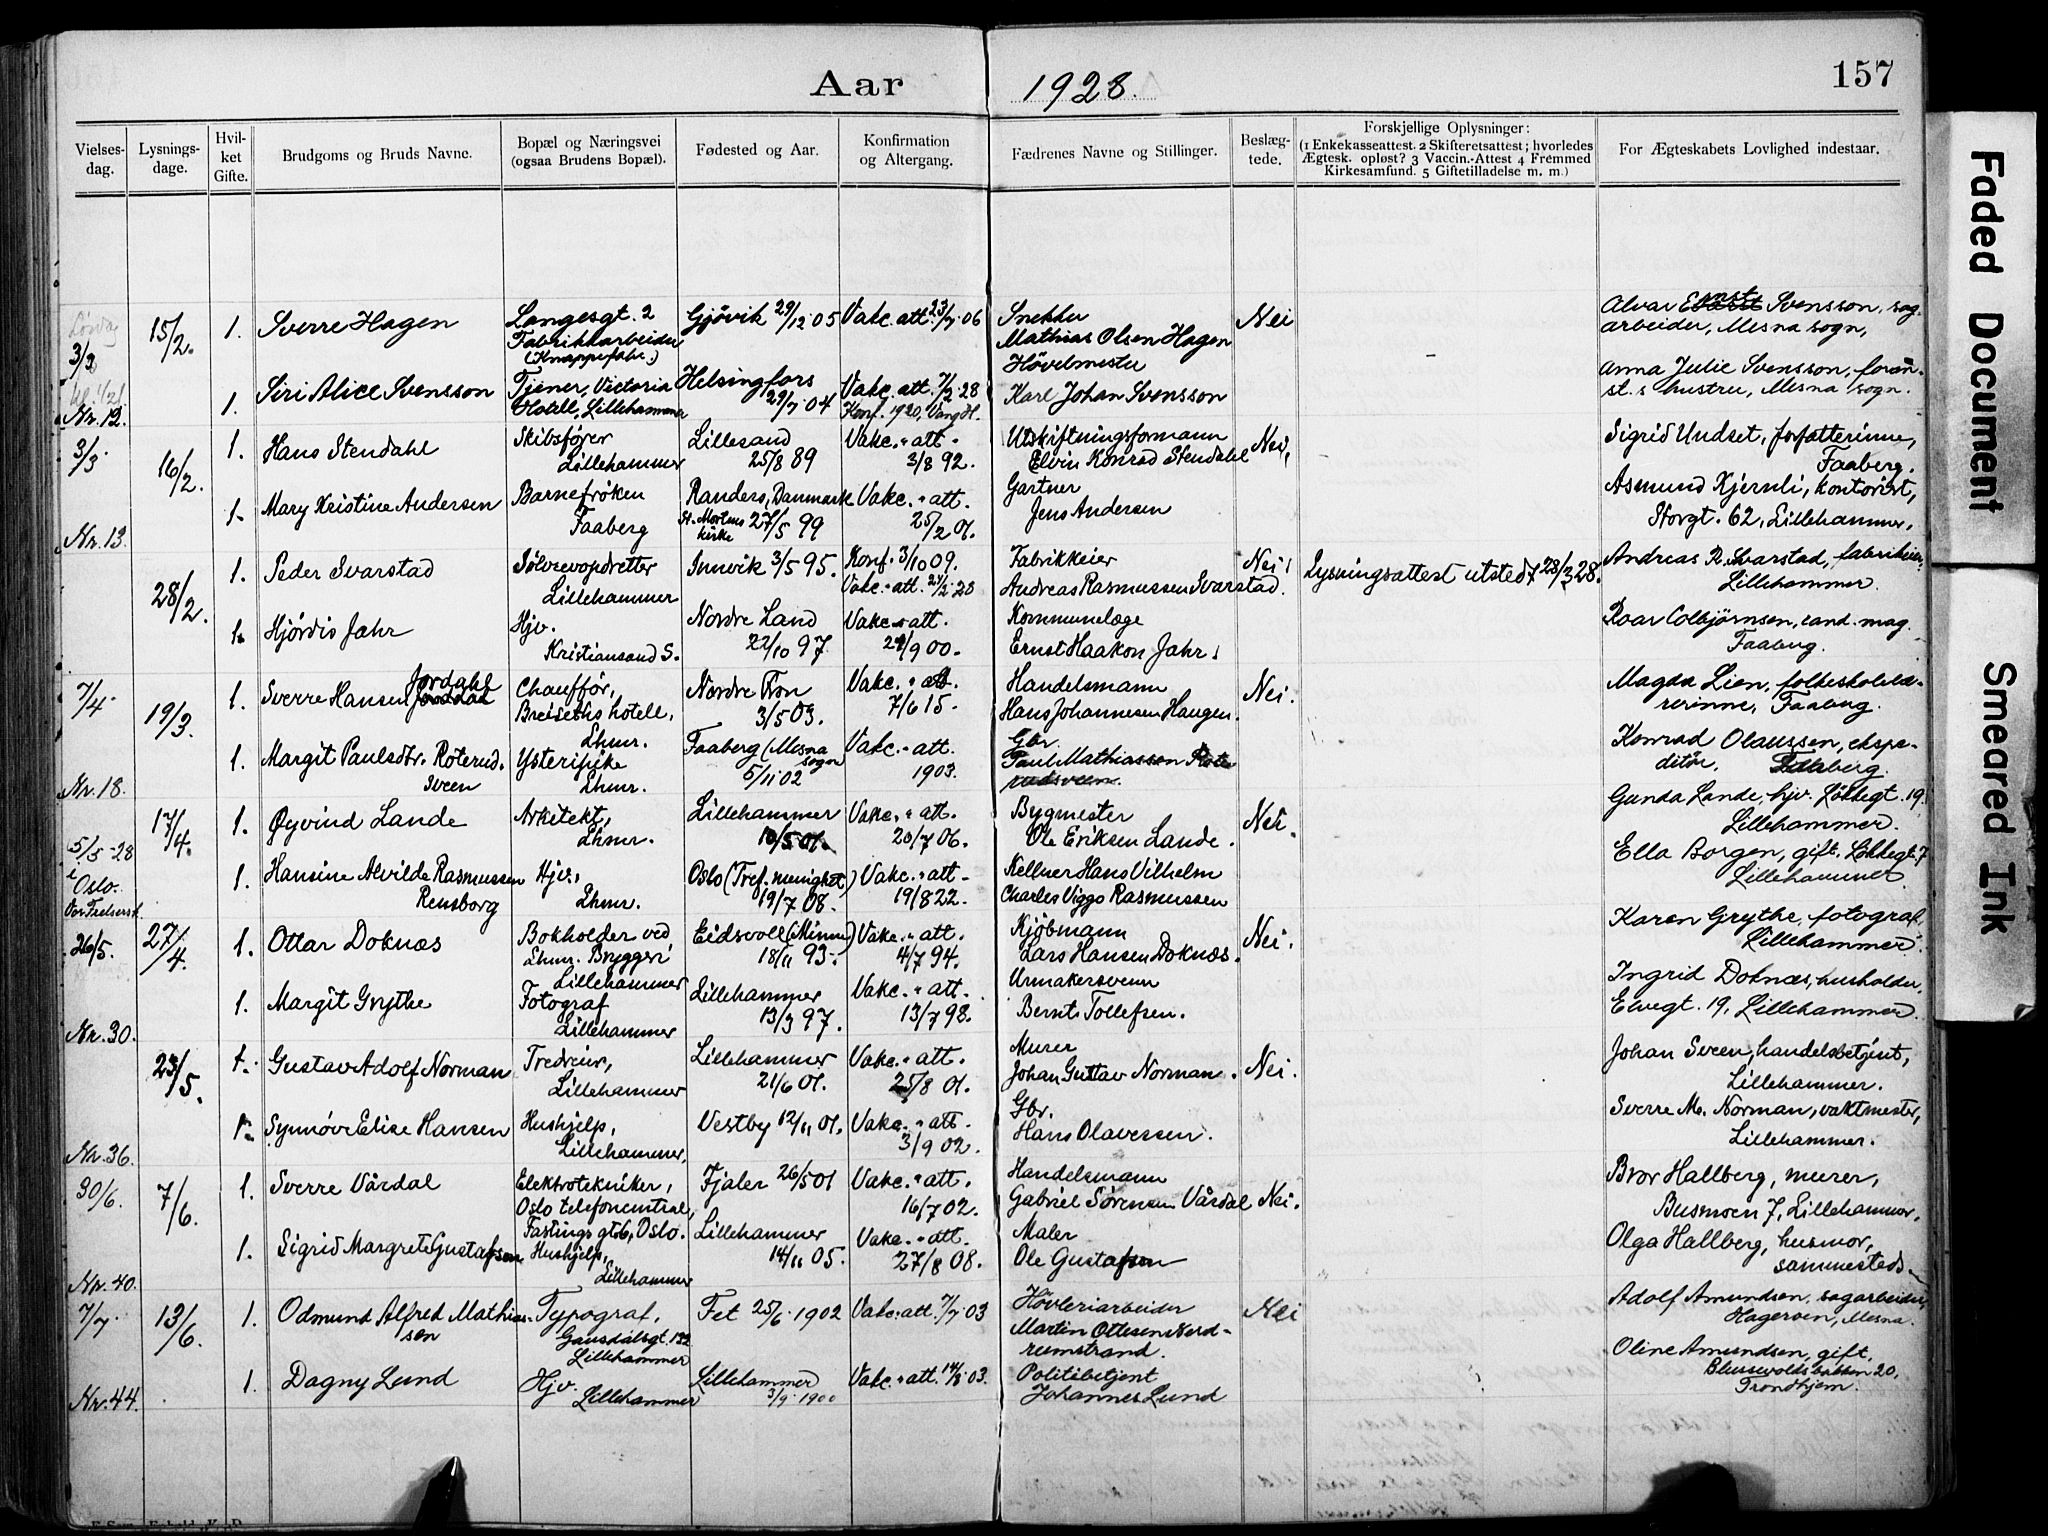 Aar 1928.
157
Vielsesdag.
Lysningsdage.
Hvilket Gifte.
Brudgoms og Bruds Navne.
Bopæl og Næringsvei (ogsaa Brudens Bopæl).
Fødested og Aar.
Konfirmation og Altergang.
Fædrenes Navne og Stillinger.
Beslægtede.
Forskjellige Oplysninger:
(1 Enkekasseattest. 2 Skifteretsattest; hvorledes
Ægtesk. opløst? 3 Vaccin.-Attest 4 Fremmed
Kirkesamfund. 5 Giftetilladelse m. m.)
For Ægteskabets Lovlighed indestaar.
3/3
Nr. 12.
15/2.
1.
Sverre Hagen
Langesgt. 2
Fabrikkarbeider
(Knappefabr.)
Gjøvik 29/12 05
Vakc. att. 23/7 06
Snekker
Mathias Olsen Hagen
Nei
Alvar Svensson, sag-
arbeider, Mesna sogn,
1.
Siri Alice Svensson
Tjener, Victoria
Hotell, Lillehammer
Helsingfors
29/7 04
Vakc. att. 7/2 28
Konf. 1920, Vang H.
Høvelmester
Karl Johan Svensson
Anna Julie Svensson,
st.s hustru, Mesna sogn.
3/3
Nr. 13.
16/2.
1.
Hans Stendahl
Skibsfører
Lillehammer
Lillesand
25/8 89
Vakc. - att.
3/8 92.
Utskiftningsformann
Elvin Konrad Stendahl
Nei,
Sigrid Undset, forfatterinne,
Faaberg.
1.
Mary Kristine Andersen
Barnefrøken
Faaberg
Randers, Danmark
St. Mortens kirke 27/5 99
Vakc. - att.
25/2 01.
Gartner
Jens Andersen
Asmund Kjernli, kontorist,
Storgt. 62, Lillehammer,
28/2.
1.
Peder Svarstad
Sølvrevopdretter
Lillehammer
Innvik 3/5 95.
Konf. 3/10 09.
Vakc. - att. 21/2 28
Fabrikkeier
Andreas Rasmussen Svarstad.
Nei!
Lysningsattest utstedt 28/3 28.
Andreas R. Svarstad, fabrikeier,
Lillehammer.
1.
Hjørdis Jahr
Hjv.
Kristiansand S.
Nordre Land
22/10 97
Vakc. - att.
21/9 00.
Kommunelæge
Ernst Haakon Jahr.
Roar Colbjørnsen, cand. mag.
Faaberg.
7/4
Nr. 18.
19/3.
1.
Sverre Hansen Jordahl
Chauffør,
Breiseths hotell,
Lhmr.
Nordre Fron
3/5 03.
Vakc. - att.
7/6 15.
Handelsmann
Hans Johannesen Haugen.
Nei.
Magda Lien, folkeskolelæ-
rerinne, Faaberg.
1.
Margit Paulsdtr. Roterud-
sveen
Ysteripike
Lhmr.
Faaberg (Mesna
sogn)
5/11 02
Vakc. - att.
1903.
Gbr.
Paul Mathiassen Rote-
rudsveen.
Konrad Olaussen, ekspe-
ditør, Faaberg.
5/5 - 28
i
Oslo.
Vor Frelsersk.
17/4.
1.
Øyvind Lande
Arkitekt,
Lhmr.
Lillehammer
10/5 01.
Vakc. - att.
20/7 06.
Bygmester
Ole Eriksen Lande.
Nei.
Gunda Lande, hjv. Løkkegt. 19.
Lillehammer.
1.
Hansine Alvilde Rasmussen
Rensborg
Hjv.,
Lhmr.
Oslo (Tref. menighet)
19/7 08.
Vakc. - att.
19/8 22.
Kellner Hans Vilhelm
Charles Viggo Rasmussen
Ella Borgen, gift, Løkkegt. 7
Lillehammer.
26/5.
Nr. 30.
27/4.
1.
Ottar Doknæs
Bokholder ved
Lhmr. Bryggeri
Lillehammer
Eidsvoll (Minne)
18/11 93.
Vakc. - att.
4/7 94.
Kjøbmann
Lars Hansen Doknæs.
Nei.
Karen Grythe, fotograf,
Lillehammer.
1.
Margit Grythe
Fotograf
Lillehammer
Lillehammer
13/3 97.
Vakc. - att.
13/7 98.
Urmakersvenn
Bernt Tollefsen.
Ingrid Doknæs, husholder,
Elvegt. 19, Lillehammer.
Nr. 36.
23/5.
1.
Gustav Adolf Norman
Tredreier,
Lillehammer
Lillehammer
21/6 01.
Vakc. - att.
25/8 01.
Murer
Johan Gustav Norman.
Nei.
Johan Sveen, handelsbetjent,
Lillehammer.
1.
Synnøve Elise Hansen
Hushjelp,
Lillehammer,
Vestby 12/11 01.
Vakc. - att.
3/9 02.
Gbr.
Hans Olavessen.
Sverre M. Norman, vaktmester,
Lillehammer.
30/6.
Nr. 40.
7/6.
1.
Sverre Vårdal
Elektrotekniker,
Oslo telefoncentral,
Fastings gt 6, Oslo.
Fjaler 26/5 01
Vakc. - att.
16/7 02.
Handelsmann
Gabriel Sørensen Vårdal
Nei.
Bror Hallberg, murer,
Busmoen 7, Lillehammer,
1.
Sigrid Margrete Gustafsen
Hushjelp,
Lillehammer
Lillehammer
14/11 05.
Vakc. - att.
27/8 08.
Maler
Ole Gustafsen
Olga Hallberg, husmor,
sammesteds.
7/7.
Nr. 44.
13/6.
1.
Odmund Alfred Mathias-
sen
Typograf,
Gausdalsgt. 122
Lillehammer
Fet 25/6 1902
Vakc. att. 7/7 03
Høvleriarbeider
Martin Ottesen Nord-
reemstrand.
Nei
Adolf Amundsen, sagarbeider,
Hagerven, Mesna.
1.
Dagny Lund
Hjv.
Lillehammer
Lillehammer
3/9 1900
Vakc. - att. 14/8 03.
Politibetjent
Johannes Lund
Oline Amundsen, gift,
Blussevoldsbakken 20,
Trondhjem.
Faded Document
Smeared Ink